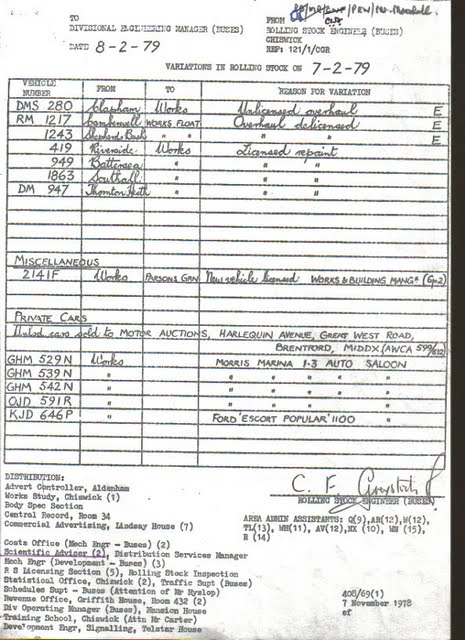 TO
DIVISIONAL ENGINEERING MANAGER (BUSES)
DATE 8-2-79
FROM
ROLLING STOCK ENGINEER (BUSES)
CHISWICK
REF: 121/1/CGR
VARIATIONS IN ROLLING STOCK ON 7-2-79
VEHICLE NUMBER FROM TO REASON FOR VARIATION
DMS 280 Clapham Works Unlicensed overhaul E
RM 1217 Camberwell WORKS FLOAT Overhaul delicensed E
1243 Shepherds Bush " " " " E
419 Riverside Works Licensed repaint
949 Battersea " " "
1863 Southall " " "
DM 947 Thornton Heath " " "
MISCELLANEOUS
2141F Works PARSONS GRN New vehicle licensed WORKS & BUILDING MANGR (Gp2)
PRIVATE CARS
Unltd cars sold to MOTOR AUCTIONS, HARLEQUIN AVENUE, GREAT WEST ROAD,
BRENTFORD, MIDDX. (AWCA 599/812)
GHM 529 N Works MORRIS MARINA 1·3 AUTO SALOON
GHM 539 N " " " " " "
GHM 542 N " " " " " "
OJD 591 R " " " " " "
KJD 646 P " FORD 'ESCORT POPULAR' 1100 "
DISTRIBUTION:
Advert Controller, Aldenham
Works Study, Chiswick (1)
Body Spec Section
Central Record, Room 34
Commercial Advertising, Lindsey House (7)
Costs Office (Mech Engr - Buses) (2)
Scientific Adviser (2), Distribution Services Manager
Mech Engr (Development - Buses) (3)
R S Licensing Section (5), Rolling Stock Inspection
Statistical Office, Chiswick (2), Traffic Supt (Buses)
Schedules Supt - Buses (Attention of Mr Hyslop)
Revenue Office, Griffith House, Room 432 (2)
Div Operating Manager (Buses), Mansion House
Training School, Chiswick (Attn Mr Carter)
Development Engr, Signalling, Telstar House
C. F.
ROLLING STOCK ENGINEER (BUSES)
AREA ADMIN ASSISTANTS: Q(9), AR(12), W(12),
TL(13), WH(11), AV(12), HX (10), WN (15),
B (14)
408/69(1)
7 November 1978
ef